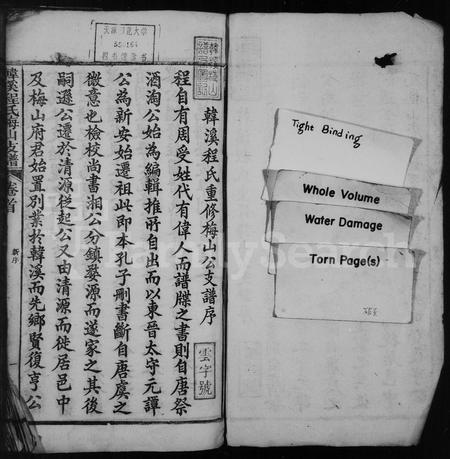 韓溪程氏重修梅山公支譜序
雲字號
程自有周受姓代有偉人而譜牒之書則自唐祭
酒淘公始為編輯推所自出而以東晉太守元譚
公為新安始遷祖此即本孔子刪書斷自唐虞之
微意也檢校尚書湘公分鎮婺源而遂家之其後
嗣遜公遷於清源從起公又由清源而徙居邑中
及梅山府君始置別業於韓溪而先鄉賢復亨公
韓溪程氏梅山支譜
卷首
新序
一
Tight Binding
Whole Volume
Water Damage
Torn Page(s)
FamilySearch